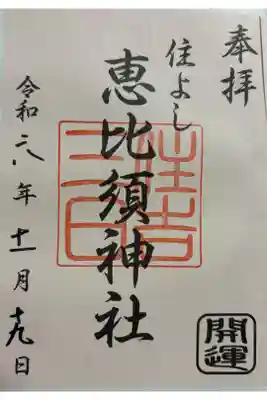 奉拝
住よし
恵比須神社
令和六年十一月十九日
開運